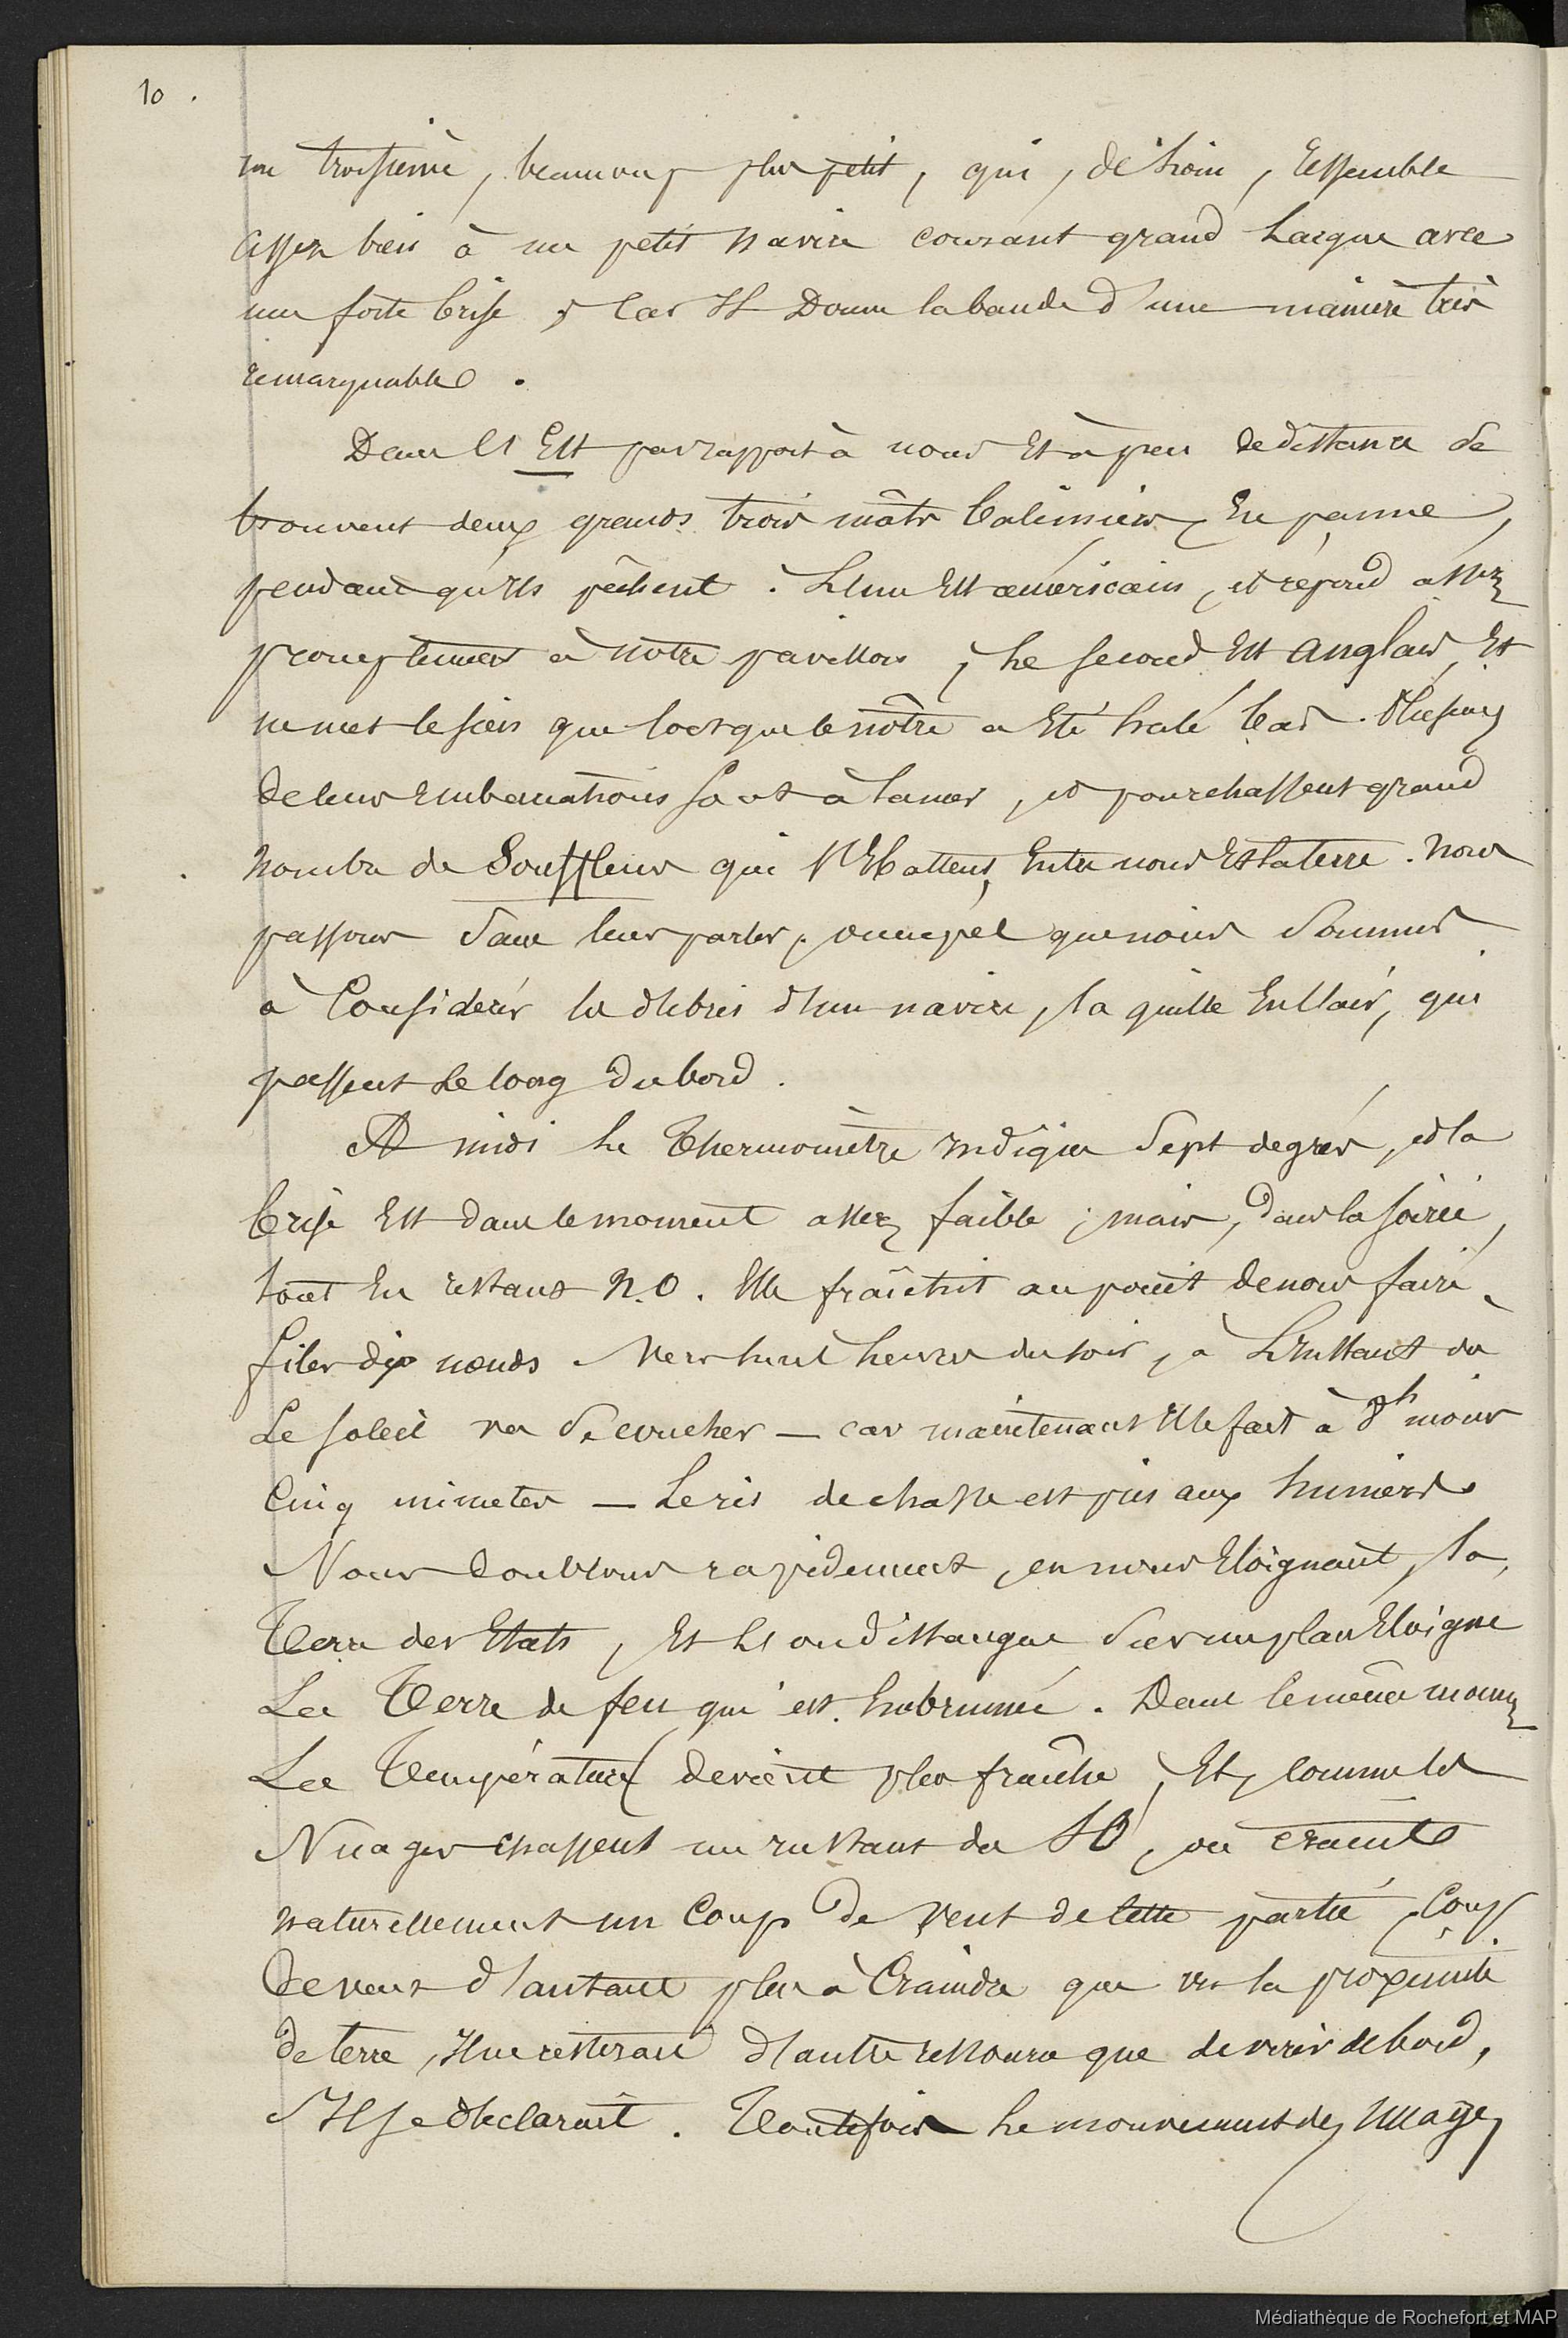 10.
un troisième, beaucoup plus petit, qui, de loin, ressemble
assez bien à un petit navire courant grand largue avec
une forte brise, car il donne la bande d'une manière très
remarquable.
Dans l'Est par rapport à nous et à peu de distance se
trouvent deux grands trois mâts baleiniers, en panne,
pendant qu'ils pêchent. L'un est américain, et répond assez
promptement à notre pavillon, le second est anglais, et
ne met le sien que lorsque le nôtre a été halé bas. Plusieurs
de leurs embarcations sont à la mer, et pourchassent grand
nombre de Souffleurs qui s'ébattent, entre nous et la terre. Nous
passons sans leur parler, occupés que nous sommes
à considérer les débris d'un navire, la quille en l'air, qui
passent le long du bord.
A midi le Thermomètre indique sept degrés, et la
brise est dans le moment assez faible ; mais, dans la soirée,
tout en restant N.O. elle fraîchit au point de nous faire
filer dix nœuds. Vers huit heures du soir, à l'instant où
le soleil va se coucher — car maintenant il le fait à 8h moins
cinq minutes — le ris de chasse est pris aux huniers.
Nous doublons rapidement, en nous éloignant, la
Terre des Etats, et l'on distingue sur un plan éloigné
la Terre de feu qui est embrumée. Dans le même moment
La Température devient plus fraîche, et, comme les
Nuages chassent un instant du SO, on craint
naturellement un coup de vent de cette partie, coup
de vent d'autant plus à craindre que vu la proximité
de terre, il ne resterait d'autre ressource que de virer de bord,
s'il se déclarait. Toutefois le mouvement des nuages
Médiathèque de Rochefort et MAP